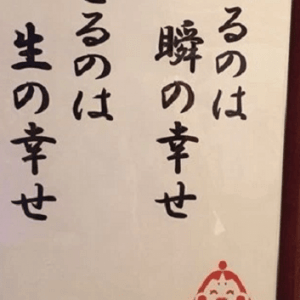 るのは
瞬の幸せ
るのは
生の幸せ